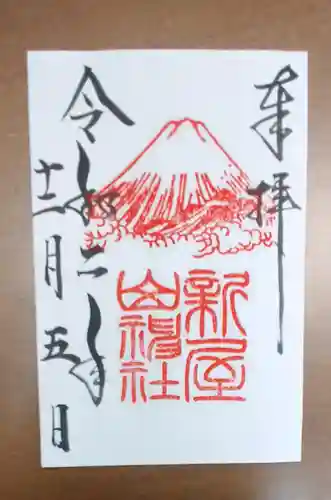 奉拝
新屋
山神社
令和二年
十二月五日